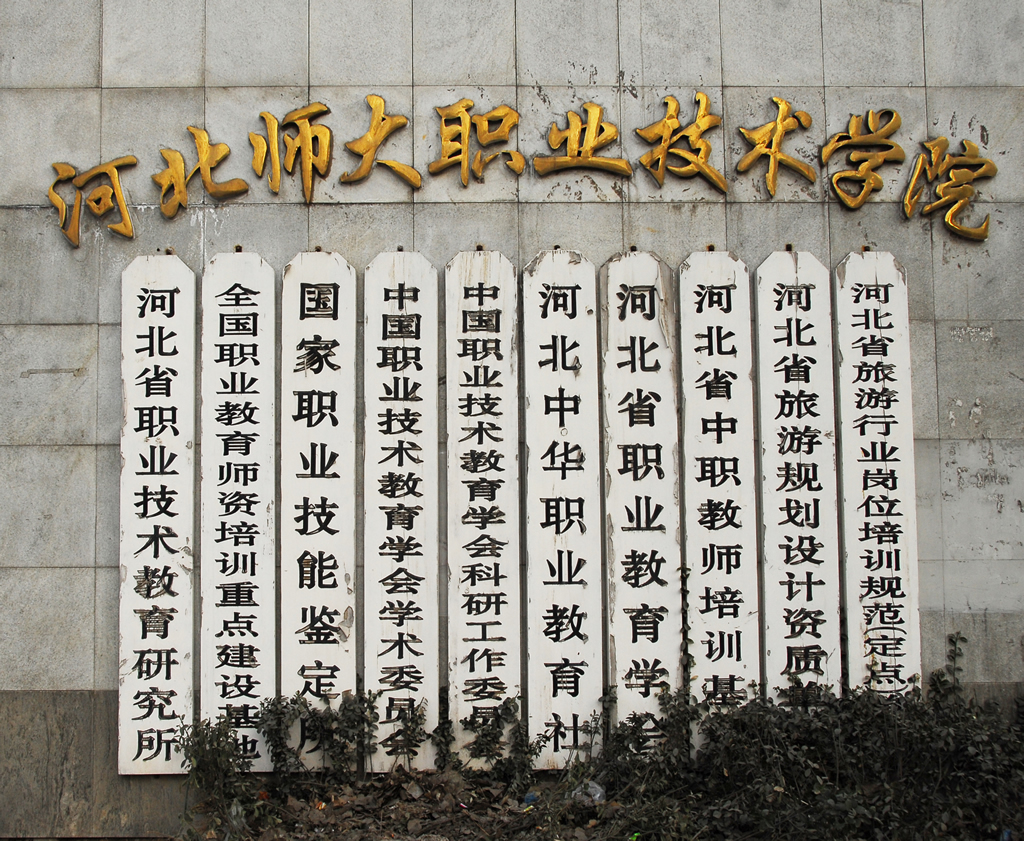 河北师大职业技术学院
河北省职业技术教育研究所
全国职业教育师资培训重点建设基地
国家职业技能鉴定所
中国职业技术教育学会学术委员会
中国职业技术教育学会科研工作委员
河北中华职业教育社
河北省职业教育学会
河北省中职教师培训基
河北省旅游规划设计资质单
河北省旅游行业岗位培训规范(定点)